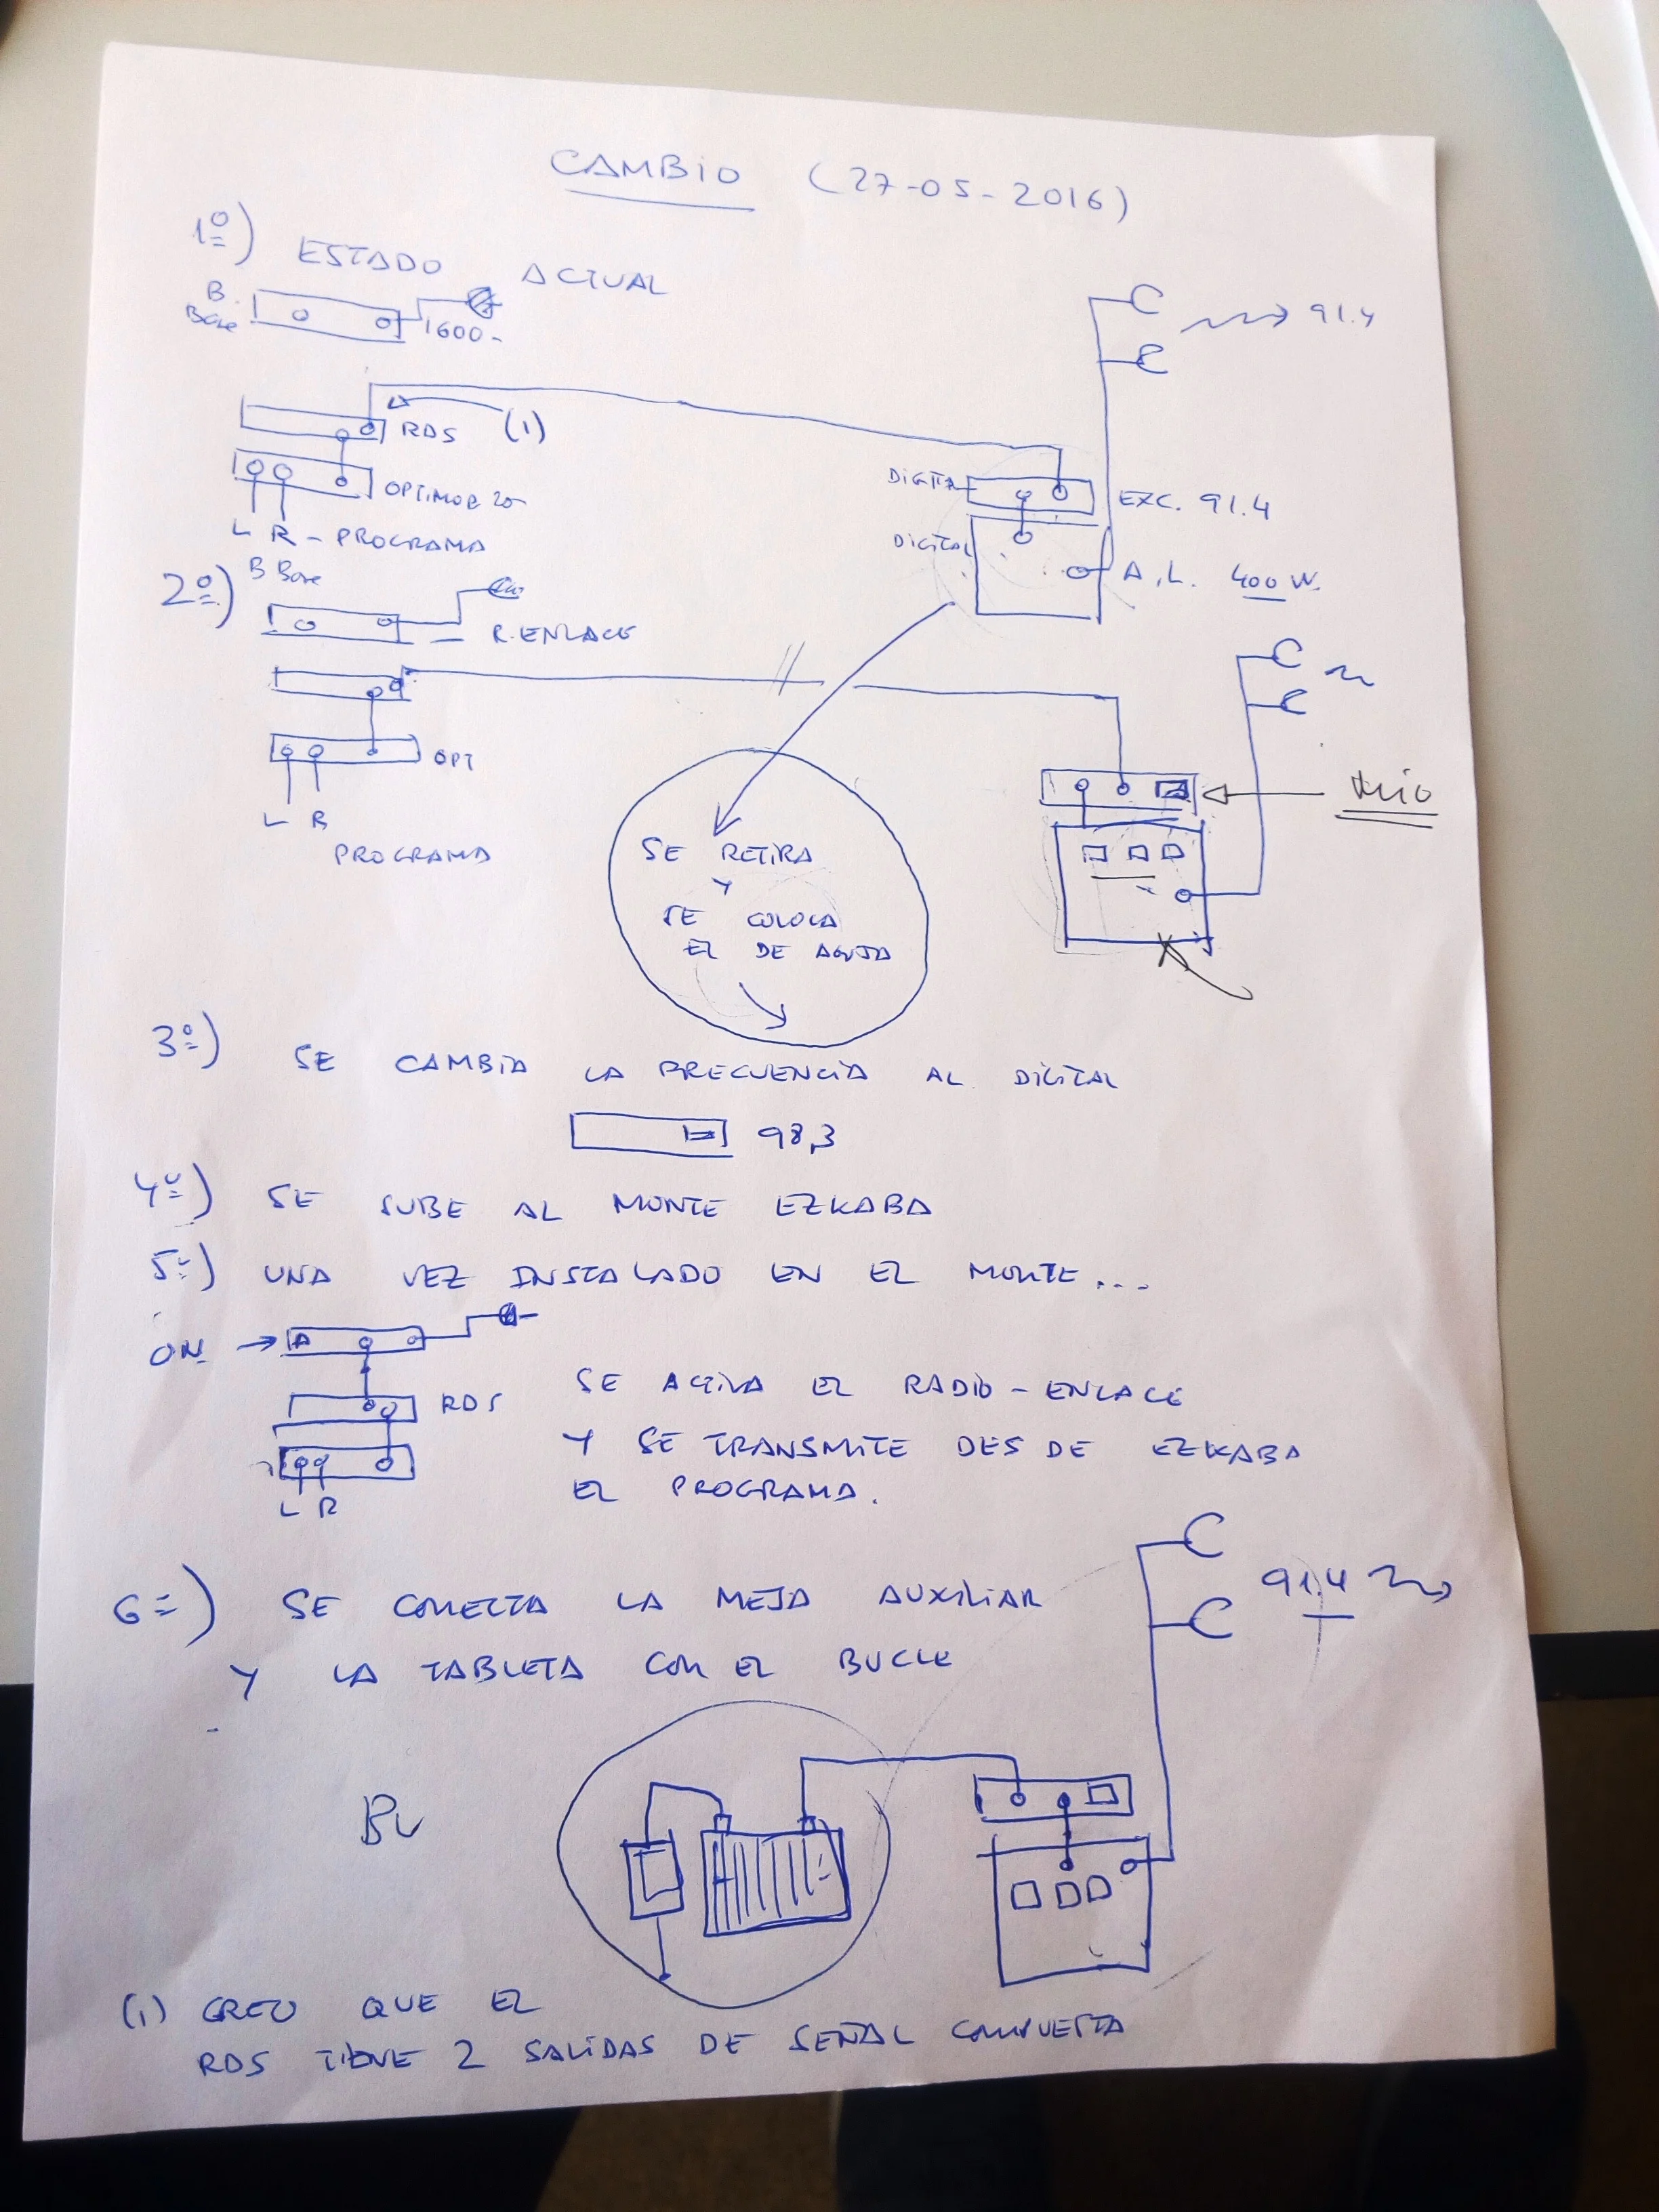 CAMBIO (27-05-2016)
1º) ESTADO ACTUAL
B.
Base
1600-
91.4
RDS (1)
OPTIMOD 20
L R - PROGRAMA
DIGITAL
EXC. 91.4
DIGITAL
A.L. 400 W.
2º) B Base
R. ENLACE
OPT
L R
PROGRAMA
SE RETIRA
Y
SE COLOCA
EL DE AGUJA
3º) SE CAMBIA LA FRECUENCIA AL DIGITAL
98,3
4º) SE SUBE AL MONTE EZKABA
5º) UNA VEZ INSTALADO EN EL MONTE...
ON
RDS
L R
SE ACTIVA EL RADIO-ENLACE
Y SE TRANSMITE DESDE EZKABA
EL PROGRAMA.
6º) SE CONECTA LA MEJA AUXILIAR
Y LA TABLETA CON EL BUCLE
91.4
BU
(1) CREO QUE EL
RDS TIENE 2 SALIDAS DE SEÑAL COMPUESTA